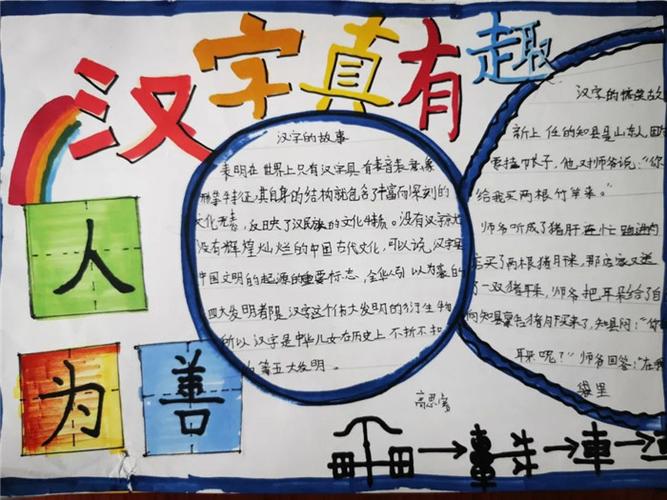 汉字真有趣
人
为
善
汉字的故事
表明在世界上只有汉字具有表音表意像
形等特征,其自身的结构就包含了丰富而深刻的
文化元素,反映了汉民族的文化特质。没有汉字就
没有辉煌灿烂的中国古代文化,可以说,汉字是
中国文明的起源的重要标志,
四大发明都是汉字这个伟大发明的衍生物
所以汉字是中华儿女在历史上不折不扣
第五大发明。
高思
汉字的搞笑故
新上任的知县是山东人,因
要挂帐子,他对师爷说:“你
给我买两根竹竿来。”
师爷听成了猪肝连忙跑进肉
店买了两根猪肝来,那店家又送
了一双猪耳朵,师爷把耳朵给了自
向知县禀告猪肝买来了,知县问:“你
耳朵呢?”师爷回答:“在我
袋里
車